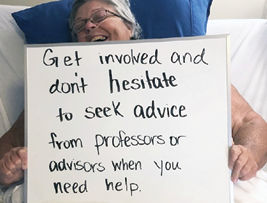 Get involved and
don't hesitate
to seek advice
from professors or
advisors when you
need help.